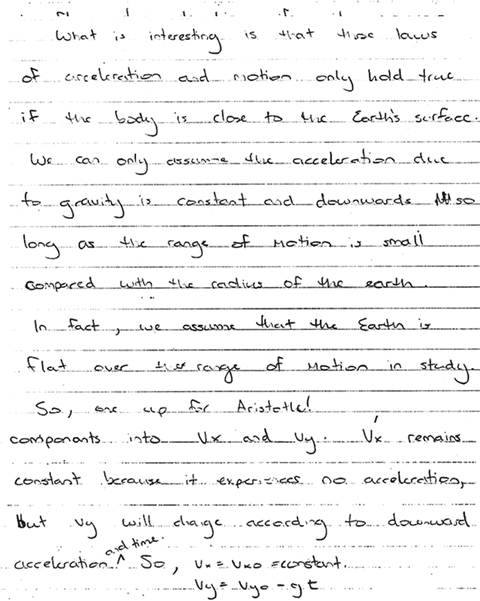 What is interesting is that those laws
of acceleration and motion only hold true
if the body is close to the Earth's surface.
We can only assume the acceleration due
to gravity is constant and downwards so
long as the range of motion is small
compared with the radius of the earth.
In fact, we assume that the Earth is
flat over the range of motion in study.
So, one up for Aristotle!
components into Vx and Vy. Vx remains
constant because it experiences no acceleration,
but Vy will change according to downward
acceleration ^ and time. So, Vx = Vx0 = constant.
Vy = Vy0 - gt